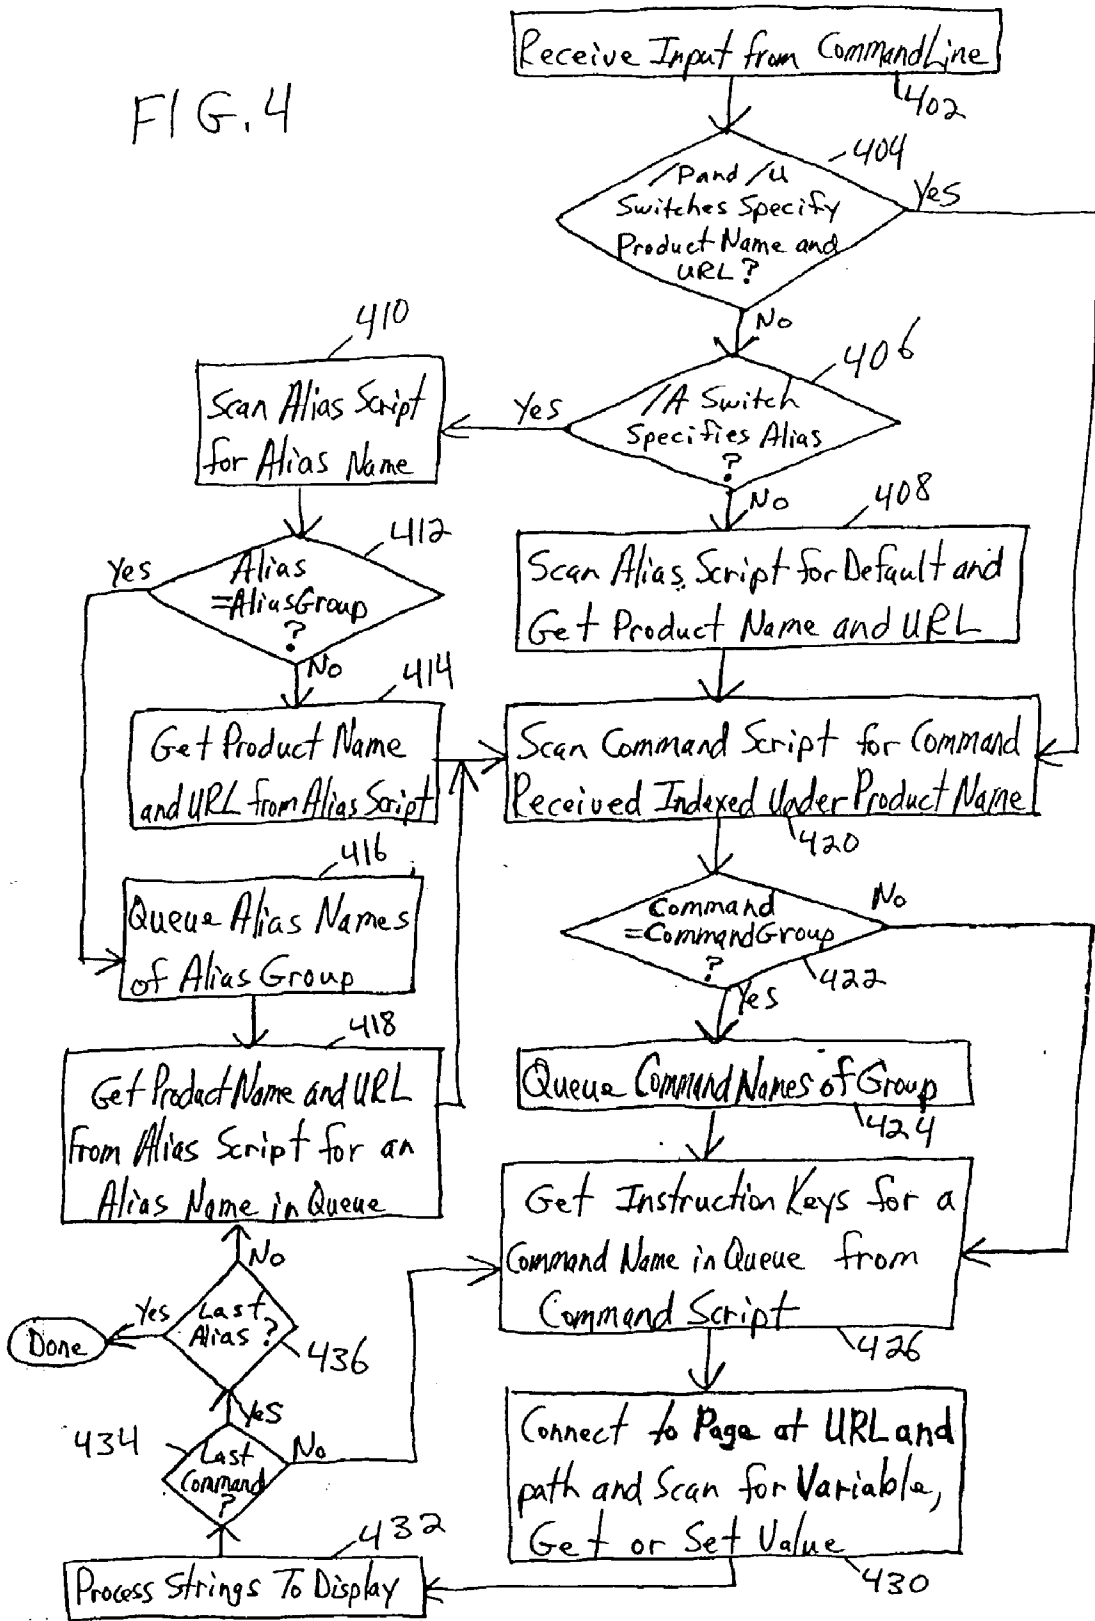 FIG. 4
Receive Input from CommandLine
402
404
/P and /U
Switches Specify
Product Name and
URL ?
Yes
No
406
/A Switch
Specifies Alias
?
Yes
No
410
Scan Alias Script
for Alias Name
408
Scan Alias Script for Default and
Get Product Name and URL
412
Alias
=AliasGroup
?
Yes
No
414
Get Product Name
and URL from Alias Script
Scan Command Script for Command
Received Indexed Under Product Name
420
416
Queue Alias Names
of Alias Group
Command
=CommandGroup
?
422
No
Yes
418
Get Product Name and URL
From Alias Script for an
Alias Name in Queue
Queue Command Names of Group
424
Get Instruction Keys for a
Command Name in Queue from
Command Script
426
No
Last
Alias ?
436
Yes
Done
Yes
434
Last
Command
?
No
Connect to Page at URL and
path and Scan for Variable,
Get or Set Value
430
432
Process Strings To Display